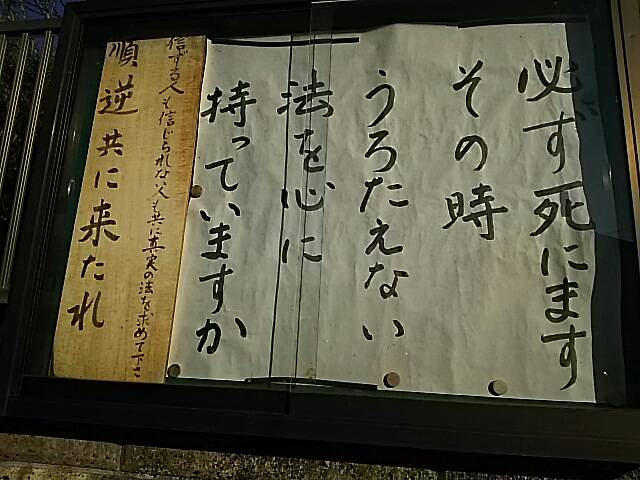 必ず死にます
その時
うろたえない
法を心に
持っていますか
信ずる人も信じられな人も共に真実の法を求めて下さ
順逆共に来たれ